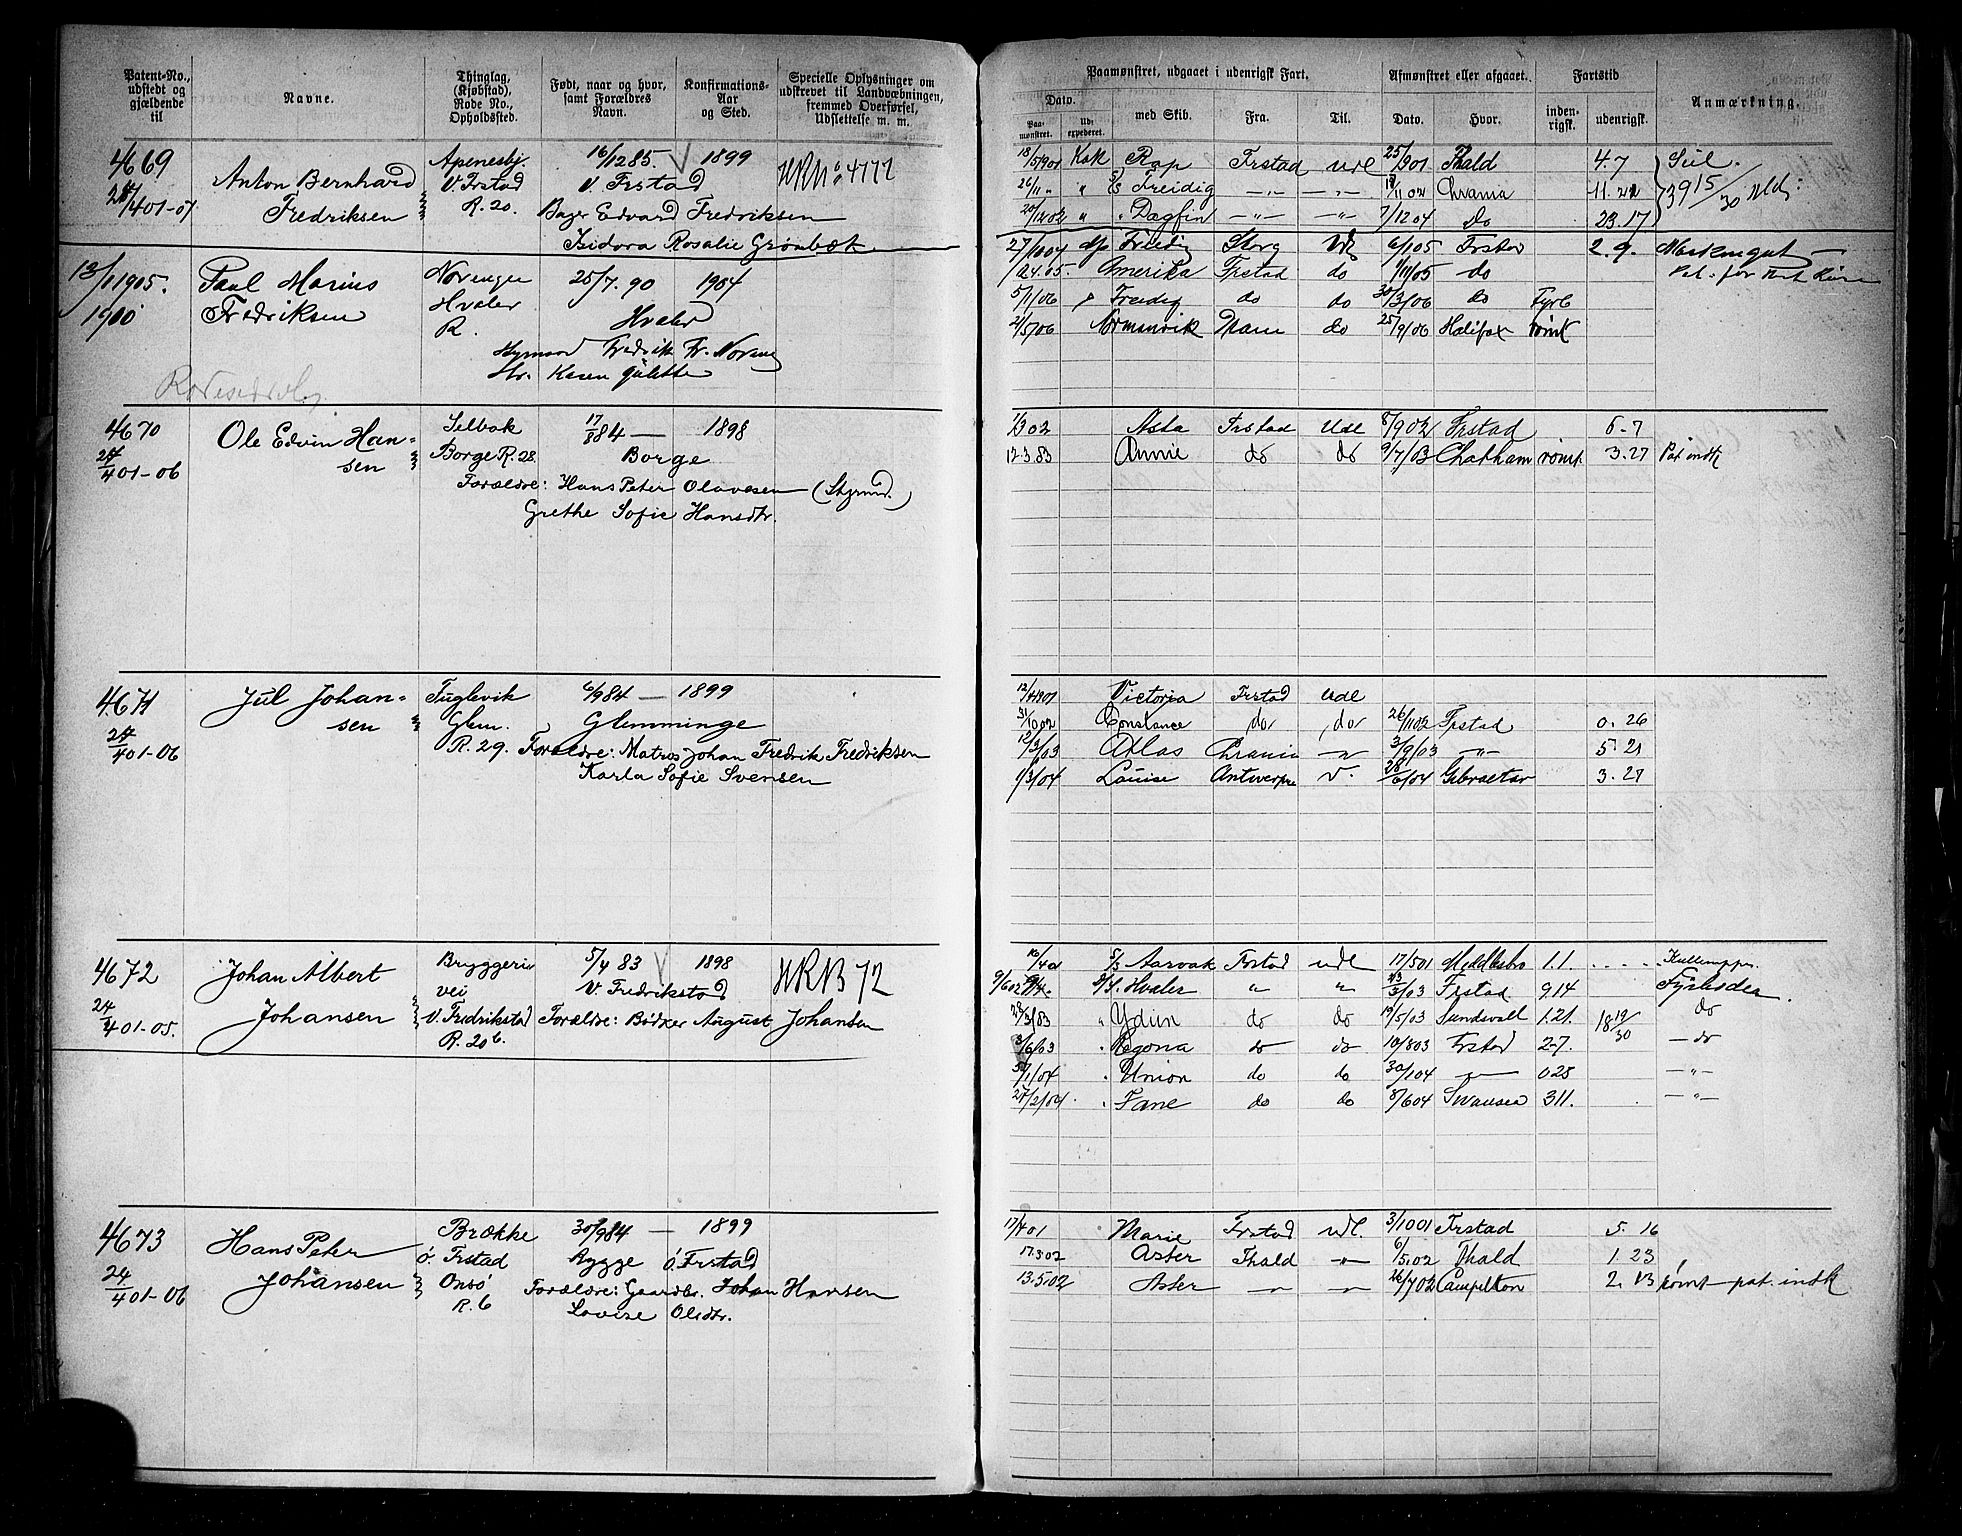 Patent-No., udstedt og gjældende til
Navne.
Thinglag, (Kjøbstad), Rode No., Opholdssted.
Født, naar og hvor, samt Forældres Navn.
Konfirmations-Aar og Sted.
Specielle Oplysninger om udskrevet til Landværningen, fremmed Overførsel, Udslettelse m. m.
Paamønstret, udgaaet i udenrigsk Fart.
Afmønstret eller afgaaet.
Fartstid
Anmærkning.
Dato.
Paa-mønstret.
Ud-expederet.
med Skib.
Fra.
Til.
Dato.
Hvor.
inden-rigsk.
udenrigsk.
4669
Anton Bernhard Fredriksen
Apenesbj. V. Frstad R. 20.
16/12 85. 1899
V. Frstad
Bager Edvard Fredriksen
Isidora Rosalie Grønbæk
18/5 901 Kok Rap Frstad udl 25/9 01 Fhald 4.7
26/11 " " S/S Freidig —"— —"— 11 02 Chrania 11.22
20/12 02 " " Dagfin —"— —"— 7/12 04 do 23.17
13/1 1905. 1910
Paul Marius Fredriksen
Hvaler R.
25/7. 90 1904
Hvaler
27/10 04 Freidig Udl 6/1 05 Frstad 2.9.
Amerika Frstad do 1/11 05 do
5/1 06 Freidig do do 30/3 06 do Fyrb
21/5 06 do 25/9 06 Halifax rømt
4670
24/4 01-06
Ole Edvin Hansen
Selbak Borge R. 28.
17/8 84 — 1898
Borge
Forældre: Hans Peter Olavesen (Styrmd.)
Grethe Sofie Hansdtr.
Asta Frstad Udl 8/9 02 Frstad 6.7
12.3.83 Annie do do 9/7/03 Chatham rømt 3.27 Pat indk
4671
24/4 01-06
Jul Johansen
Fuglevik Glem. R. 29.
6/9 84 — 1899
Glemminge
Forældre: Matros Johan Fredrik Fredriksen
Karla Sofie Svensen
12/4 1901 Victoria Frstad Udl
31/10 02 Constance do do 26/11 02 Frstad 0.26
12/3/03 Atlas Chrania —"— 3/9/03 —"— 5.21
1/3/04 Louise Antwerpen 28/6/04 Gibraltar 3.27
4672
24/4 01-05.
Johan Albert Johansen
Bryggeri vei V. Fredrikstad R. 20 b.
5/4 83 1898
V. Fredrikstad
Forældre: Bødker August Johansen
S/S Aarvak Frstad udl 17/5 01 Middlesbro 1.1.
S/S. Hvaler " " 3/03 Frstad 914
" Ydun do do 19/5/03 Sundsvall 1.21. 18 19/30 do
3/6/03 do do 10/8 03 Frstad 2-7. — do
" Union do do 30/1 04 —"— 028 —"—
" Fane do do 8/6 04 Swansea 311. —"—
4673
24/4 01-06
Hans Peter Johansen
Brække ö. Frstad Onsö R. 6
30/9 84 — 1899
Rygge ö. Frstad
Forældre: Gaardbr. Johan Hansen
Lovise Olsdtr.
17/4 01 Marie Frstad udl. 3/10 01 Frstad 5 16
17.3.02 Aster Fhald —"— 6/5.02 Fhald 1 23
13.5.02 Aster —"— —"— 26/7 02 Campelton 2. 13 rømt — pat. indk